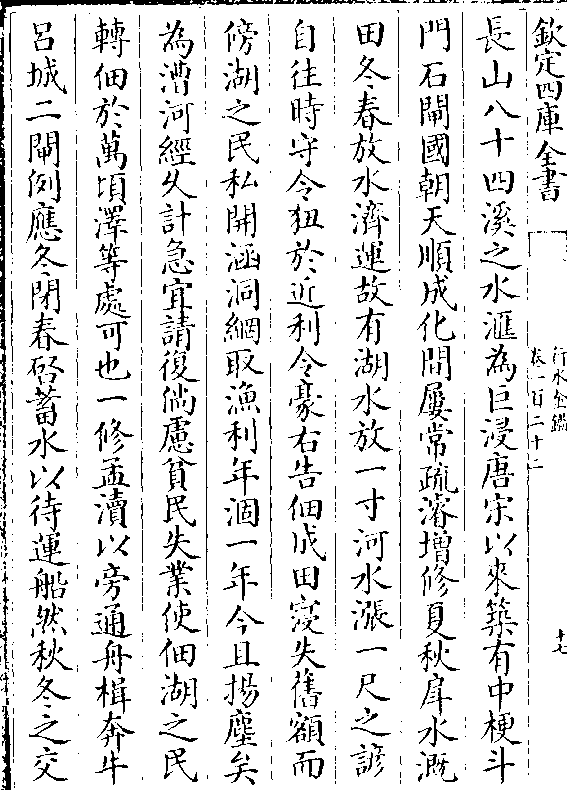 欽定四庫全書
行水金鑑
卷一百二十二
十七
長山八十四溪之水滙為巨浸唐宋以來築有中梗斗
門石閘國朝天順成化間屢常疏濬增修夏秋戽水溉
田冬春放水濟運故有湖水放一寸河水漲一尺之諺
自往時守令狃於近利令豪右告佃成田寖失舊額而
傍湖之民私開涵洞網取漁利年涸一年今且揚塵矣
為漕河經久計急宜請復倘慮貧民失業使佃湖之民
轉佃於萬頃澤等處可也一修孟瀆以旁通舟楫奔牛
呂城二閘例應冬閉春啓蓄水以待運船然秋冬之交